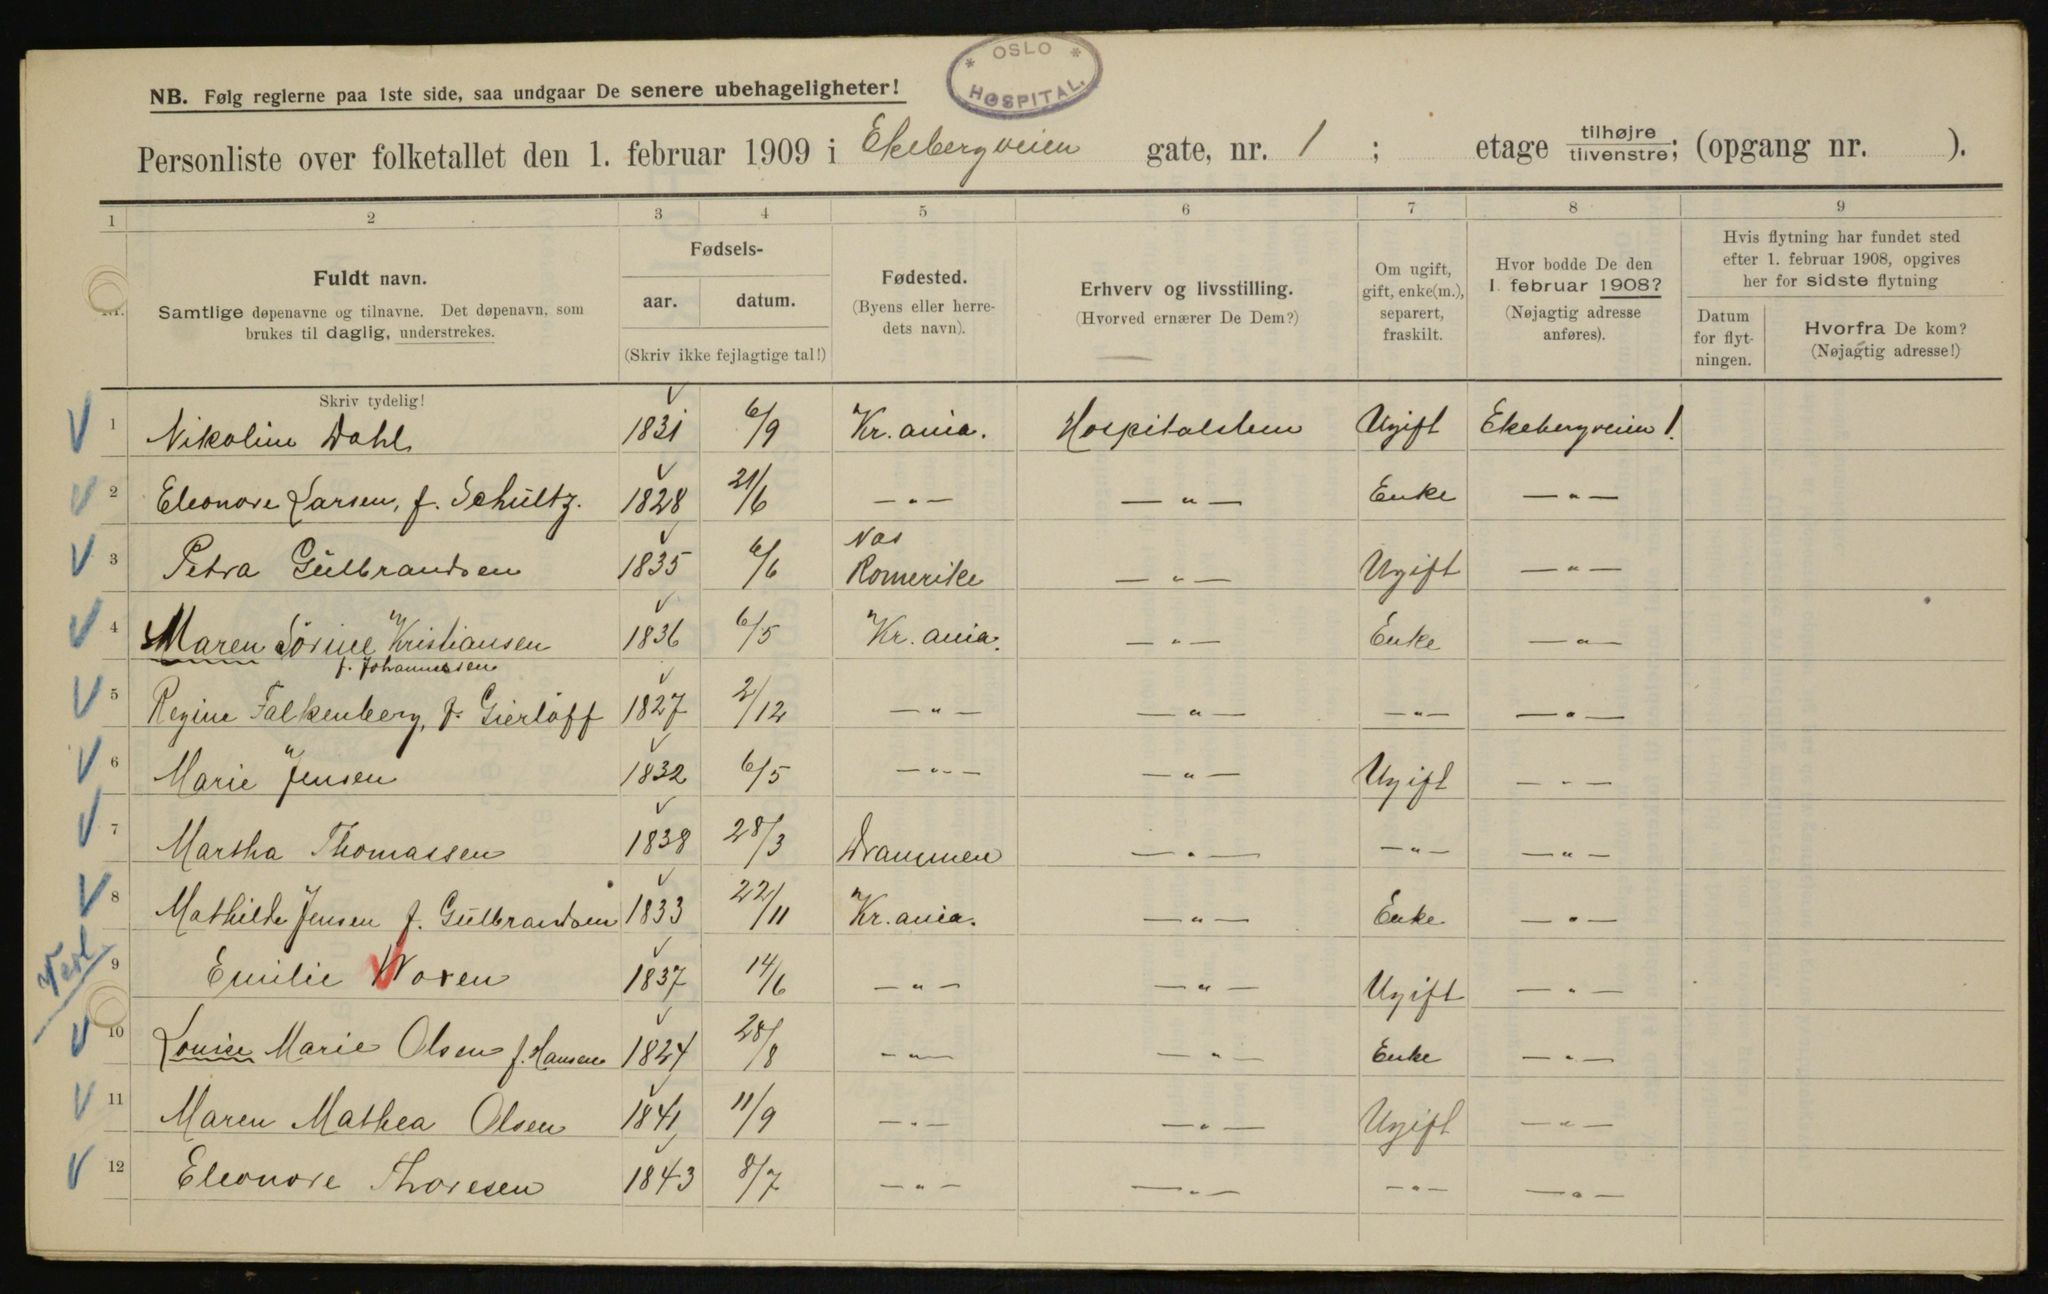 OSLO HOSPITAL.
NB. Følg reglerne paa 1ste side, saa undgaar De senere ubehageligheter!
Personliste over folketallet den 1. februar 1909 i Ekebergveien gate, nr. 1 ; etage tilhøjre/tilvenstre; (opgang nr. ).
1 2 3 4 5 6 7 8 9
Fuldt navn.
Samtlige døpenavne og tilnavne. Det døpenavn, som
brukes til daglig, understrekes.
Skriv tydelig!
Fødsels-
aar. datum.
(Skriv ikke feilagtige tal!)
Fødested.
(Byens eller herre-
dets navn).
Erhverv og livsstilling.
(Hvorved ernærer De Dem?)
Om ugift,
gift, enke(m.),
separert,
fraskilt.
Hvor bodde De den
1. februar 1908?
(Nøjagtig adresse
anføres).
Hvis flytning har fundet sted
efter 1. februar 1908, opgives
her for sidste flytning
Datum
for flyt-
ningen.
Hvorfra De kom?
(Nøjagtig adresse!)
1 Nikoline Dahl 1831 6/9 Kr.ania. Hospitalslem Ugift Ekebergveien 1.
2 Eleonore Larsen, f. Schultz. 1828 21/6 —"— —"— Enke —"—
3 Petra Gulbrandsen 1835 6/6 Nes Romerike —"— Ugift —"—
4 Maren Sörine Kristiansen f. Johannessen 1836 6/5 Kr.ania. —"— Enke —"—
5 Regine Falkenberg, f. Gierløff 1827 2/12 —"— —"— —"— —"—
6 Marie Jensen 1832 6/5 —"— —"— Ugift —"—
7 Martha Thomassen 1838 28/3 Drammen —"— —"— —"—
8 Mathilde Jensen f. Gulbrandsen 1833 22/11 Kr.ania. —"— Enke —"—
9 Emilie Woxen 1837 14/6 —"— —"— Ugift —"—
10 Louise Marie Olsen f. Hansen 1824 28/8 —"— —"— Enke —"—
11 Maren Mathea Olsen 1841 11/9 —"— —"— Ugift —"—
12 Eleonore Thoresen 1843 8/7 —"— —"— —"— —"—